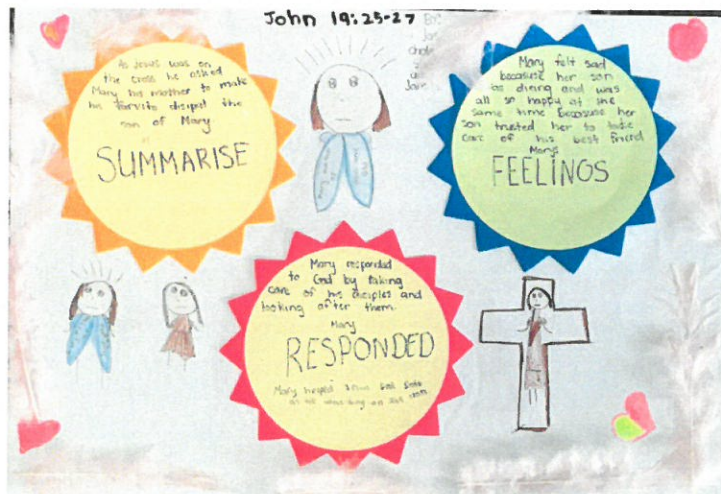 John 19:25-27
As Jesus was on
the cross he asked
Mary his mother to make
his forvite disipel the
son of Mary
SUMMARISE
Mary felt sad
because her son
was dining and was
all so happy at the
same time because her
son trusted her to take
care of his best friend
Marys
FEELINGS
Mary responded
to God by taking
care of his disciples and
looking after them.
Mary
RESPONDED
Mary helped